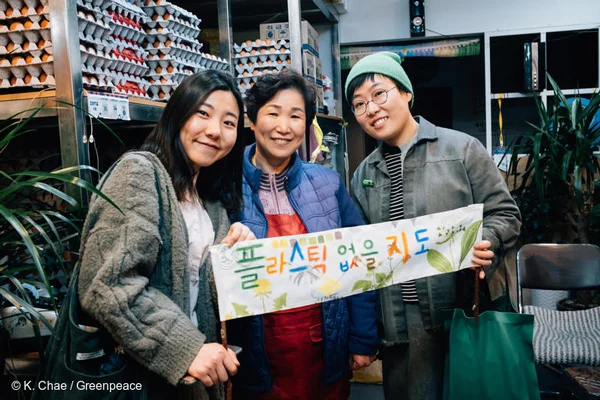 플라스틱 없을 지도
© K. Chae / Greenpeace